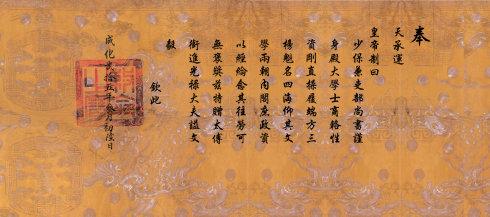 奉
天承運
皇帝制曰
少保兼吏部尚書謹
身殿大學士商輅性
資剛直操履端方三
楊魁名四海仰其文
學兩朝內閣黨政資
以經綸念其往勞可
無褒獎茲特贈太傅
銜進光祿大夫諡文
毅
欽此
成化貳拾五年 月初 日